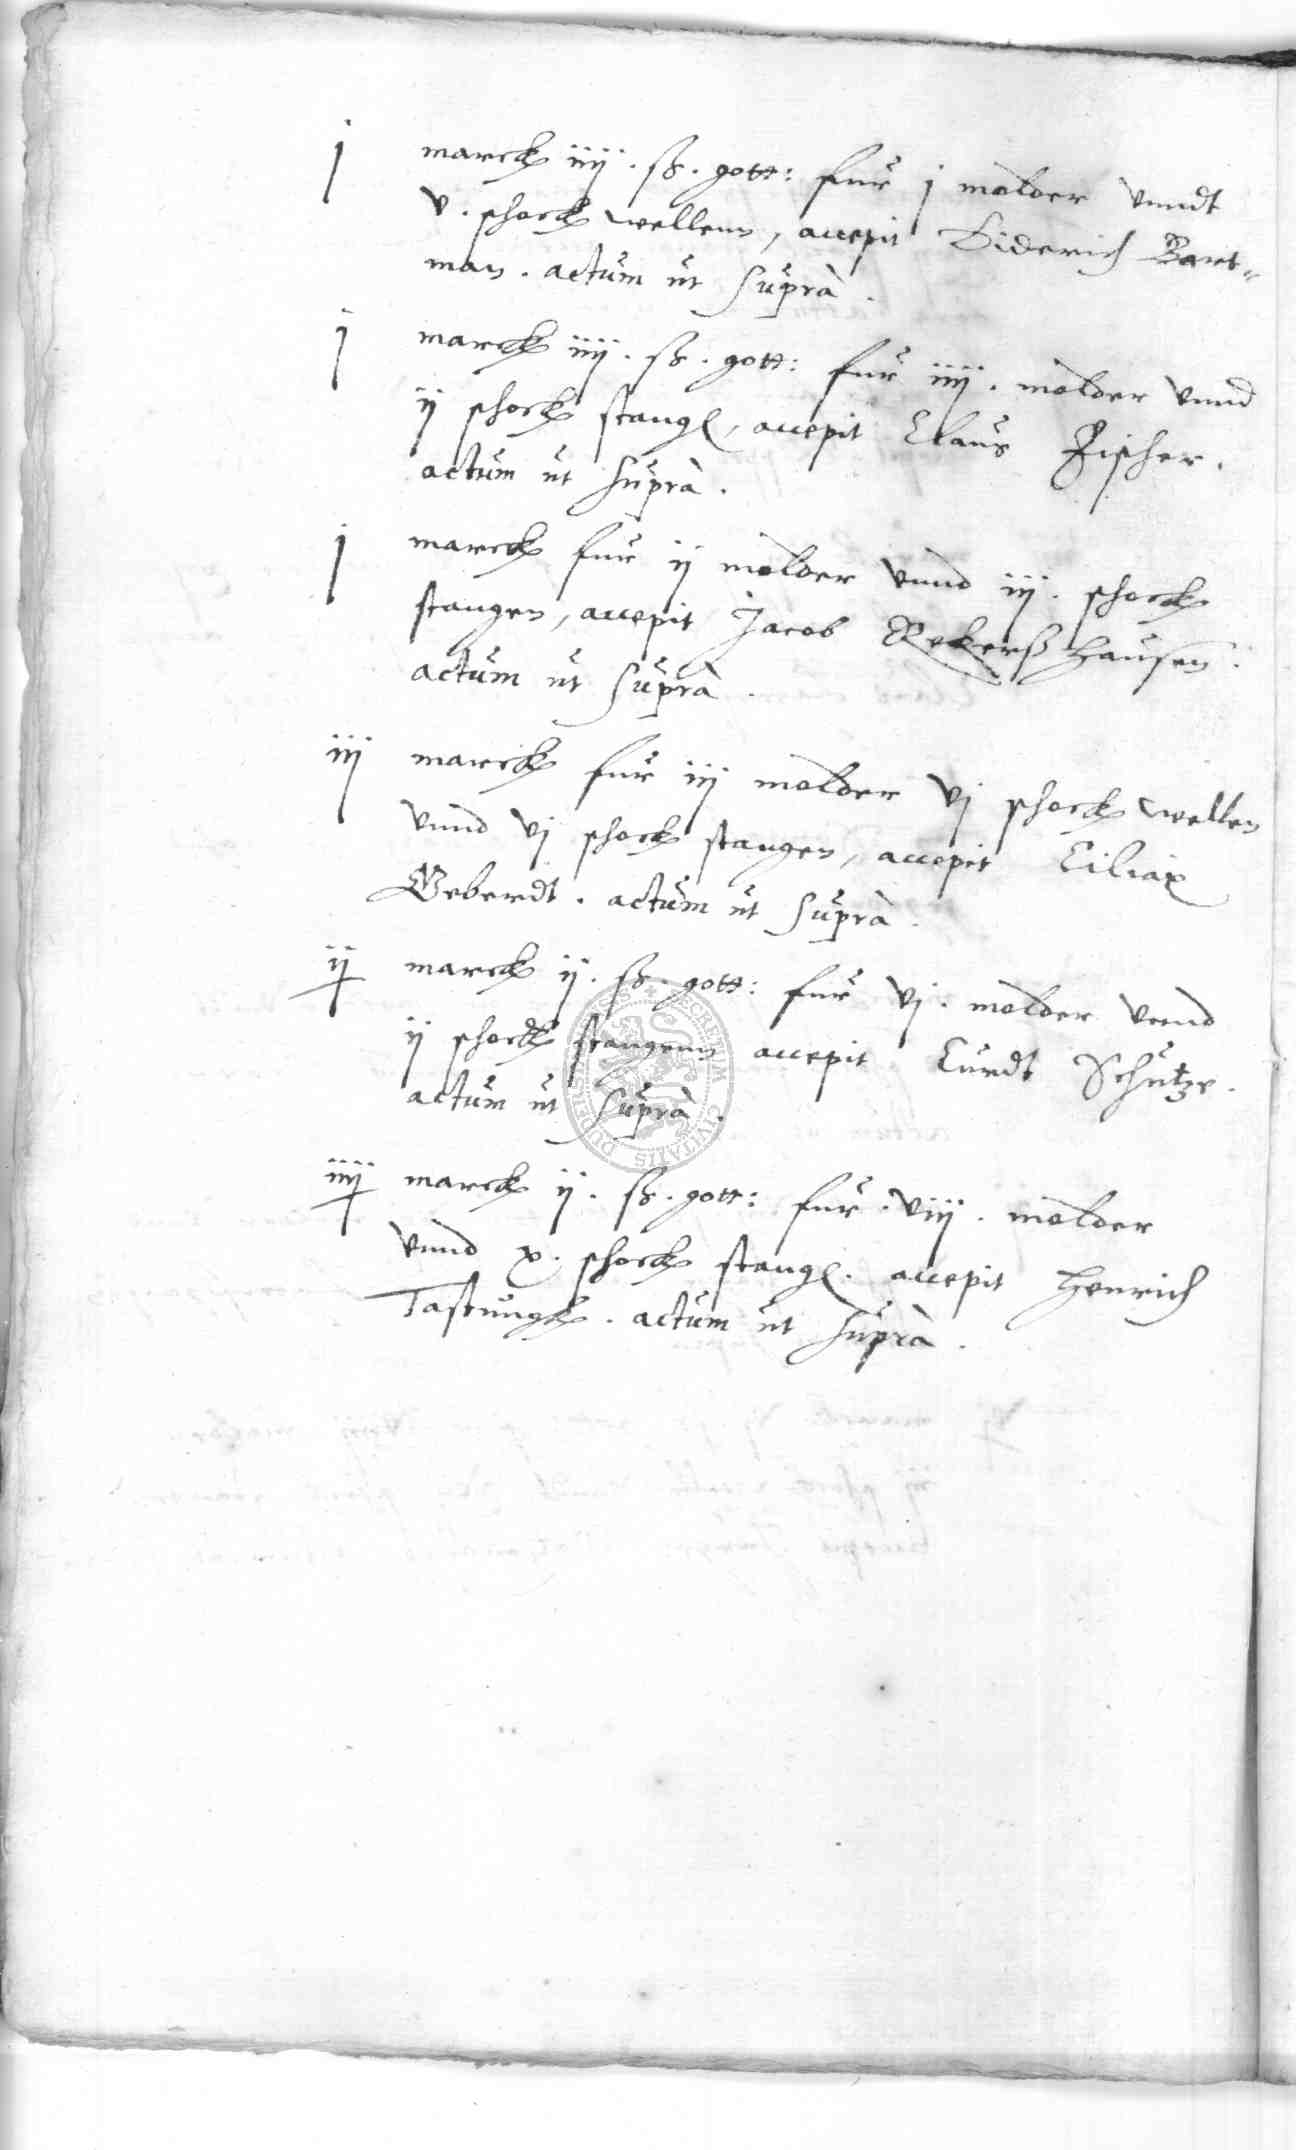 j marck iiij . ß . gott: fur j molder vnndt
v . schock wellenn, accepit Diderich Bart-
man . actum ut supra .
j marck iiij . ß . gott: fur iiij . molder vnnd
ij schock stang, accepit Claus Fischer .
actum ut supra .
j marck fur ij molder vnnd iij . schock
stangen, accepit Jacob Rekerßhausen .
actum ut supra .
iij marck fur iij molder vj schock wellen
vnnd vj schock stangen, accepit Ciliax
Geberdt . actum ut supra .
ij marck ij . ß . gott: fur vj . molder vnnd
ij schock stangenn accepit Curdt Schutze .
actum ut supra .
iiij marck ij . ß . gott: fur . viij . molder
vnnd x . schock stang . accepit Henrich
Tastungk . actum ut supra .
SECRETVM CIVITATIS DUDERST